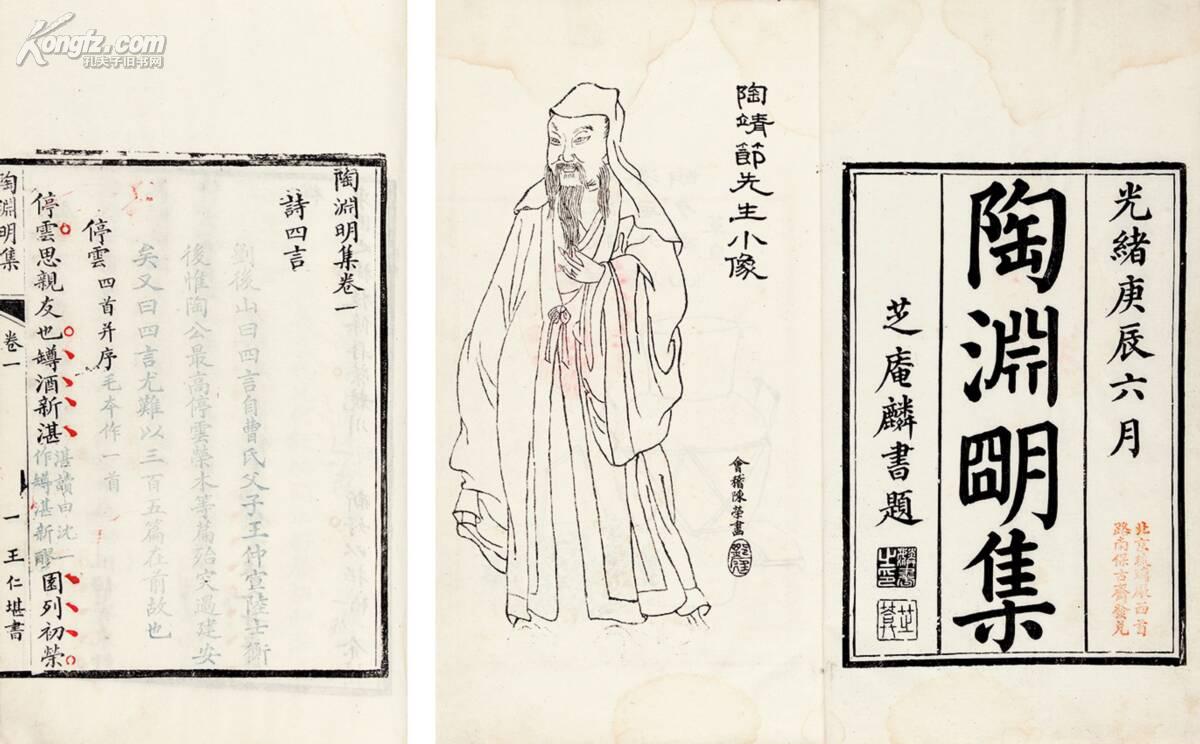 Kongfz.com
孔夫子旧书网
光緒庚辰六月
陶淵明集
芝庵麟書題
陶靖節先生小像
會稽陳榮畫
陶淵明集卷一
詩四言
劉後山曰四言自曹氏父子王仲宣陸士衡
後惟陶公最高停雲榮木等篇殆突過建安
矣又曰四言尤難以三百五篇在前故也
停雲四首并序
毛本作一首
停雲思親友也罇酒新湛
湛讀曰沈一
作罇湛新醪
園列初榮
陶淵明集
卷一
一
王仁堪書